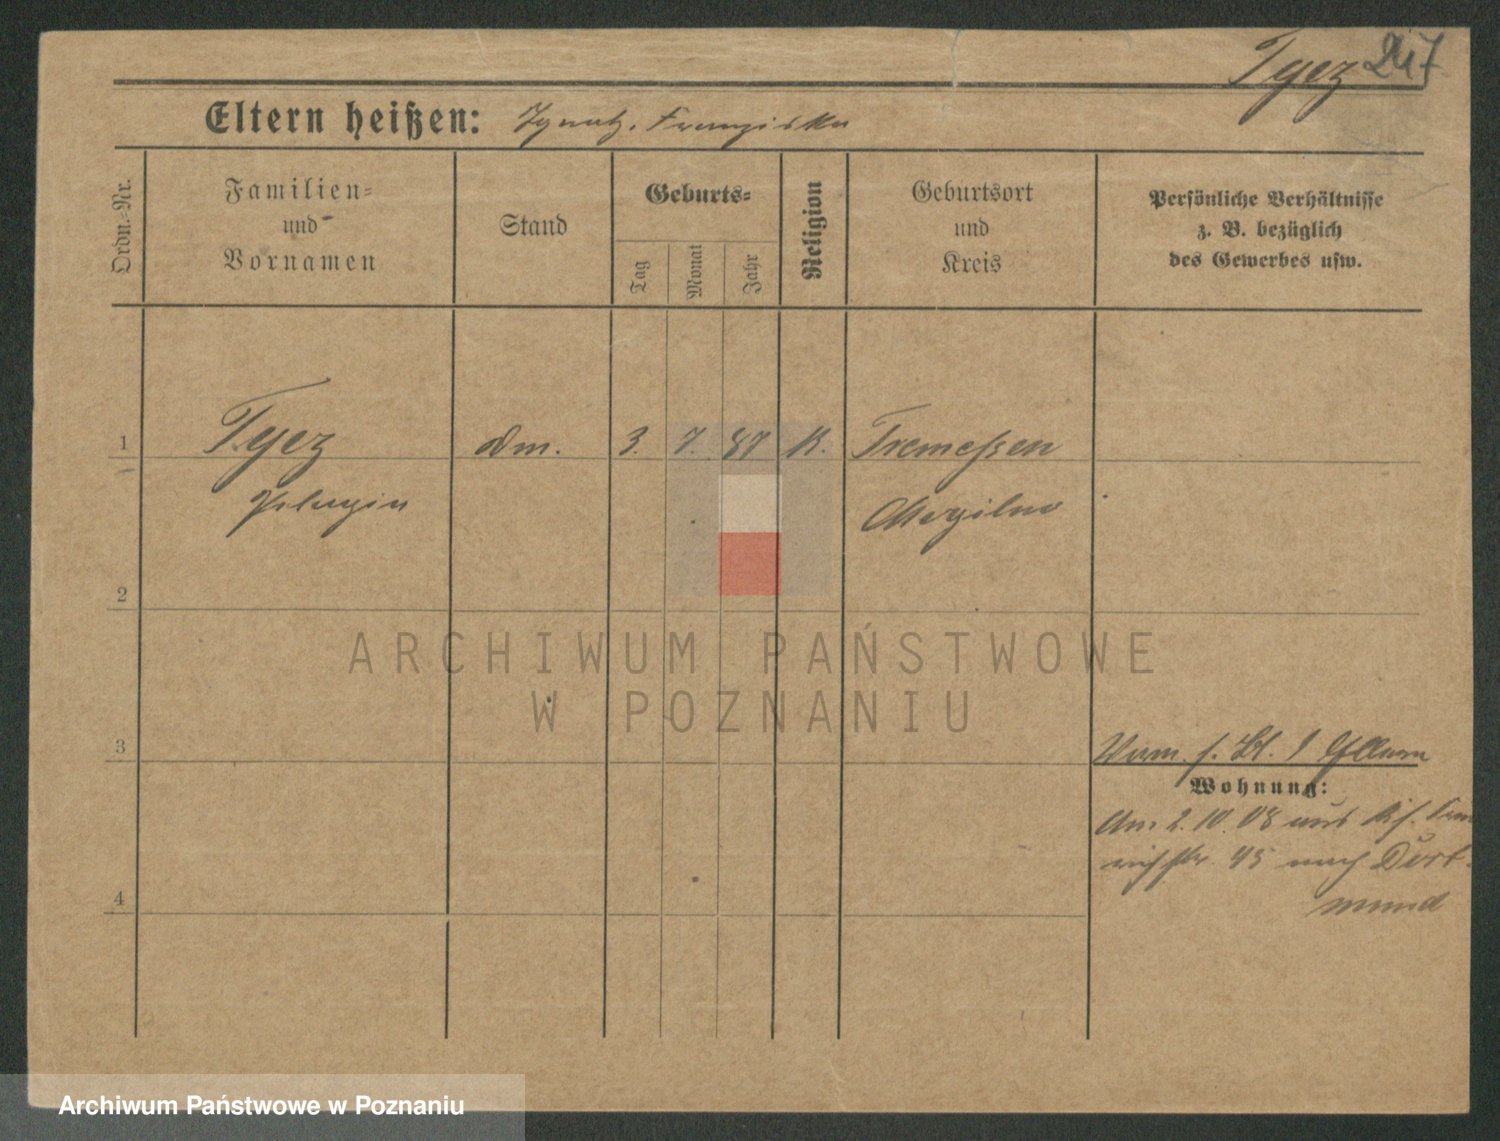 Tyez 247
Eltern heißen: Ignatz, Franziska
Ordn.-Nr.
Familien-
und
Vornamen
Stand
Geburts-
Tag
Monat
Jahr
Religion
Geburtsort
und
Kreis
Persönliche Verhältnisse
z. B. bezüglich
des Gewerbes usw.
1 Tyez Dm. 3. 7. 87 K. Tremessen
Pelagia Mogilno
2
ARCHIWUM PAŃSTWOWE
W POZNANIU
3
Wohnung:
Am 2. 10. 08 aus
45 nach Dort-
mund
4
Archiwum Państwowe w Poznaniu